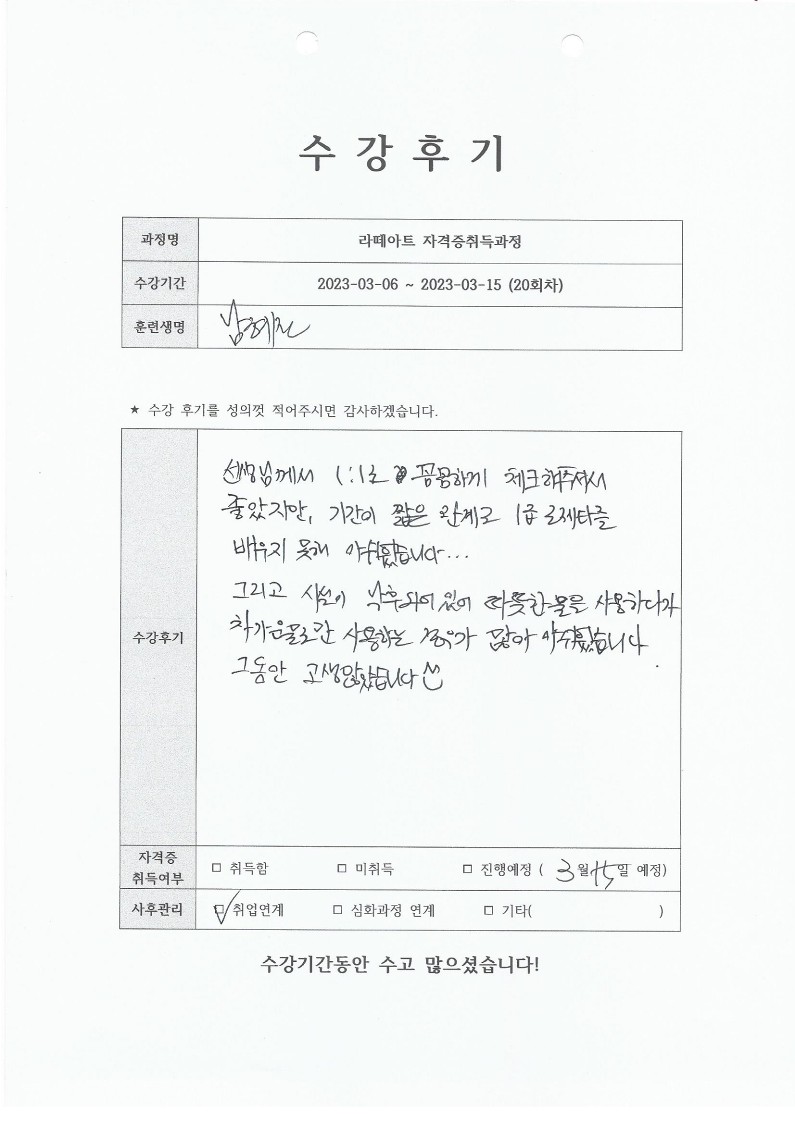 수 강 후 기
과정명 라떼아트 자격증취득과정
수강기간 2023-03-06 ~ 2023-03-15 (20회차)
훈련생명 남예진
★ 수강 후기를 성의껏 적어주시면 감사하겠습니다.
수강후기
선생님께서 1:1로 꼼꼼하게 체크해주셔서
좋았지만, 기간이 짧은 관계로 1급 로제타를
배우지 못해 아쉬웠습니다...
그리고 시설이 낙후되어있어 따뜻한물을 사용하다가
차가운물로만 사용하는 경우가 많아 아쉬웠습니다
그동안 고생많았습니다
자격증 취득여부 □ 취득함 □ 미취득 □ 진행예정 ( 3월 15일 예정)
사후관리 ☑ 취업연계 □ 심화과정 연계 □ 기타( )
수강기간동안 수고 많으셨습니다!